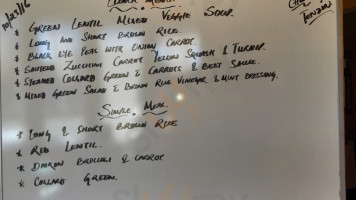 10/23/16
Lunch Menu
* Green Lentil Mixed Veggie Soup.
* Long and Short Brown Rice.
* Black Eye Peas with Onion Carrot.
* Zucchini Carrot Yellow Squash & Turnip.
* Steamed Collard Green & Carrots & Beet Sauce.
* Mixed Green Salad & Brown Rice Vinegar & Mint Dressing.
Simple Meal
* Long & Short Brown Rice
* Red Lentil.
* Daikon Broccoli & Carrot
* Collard Green.